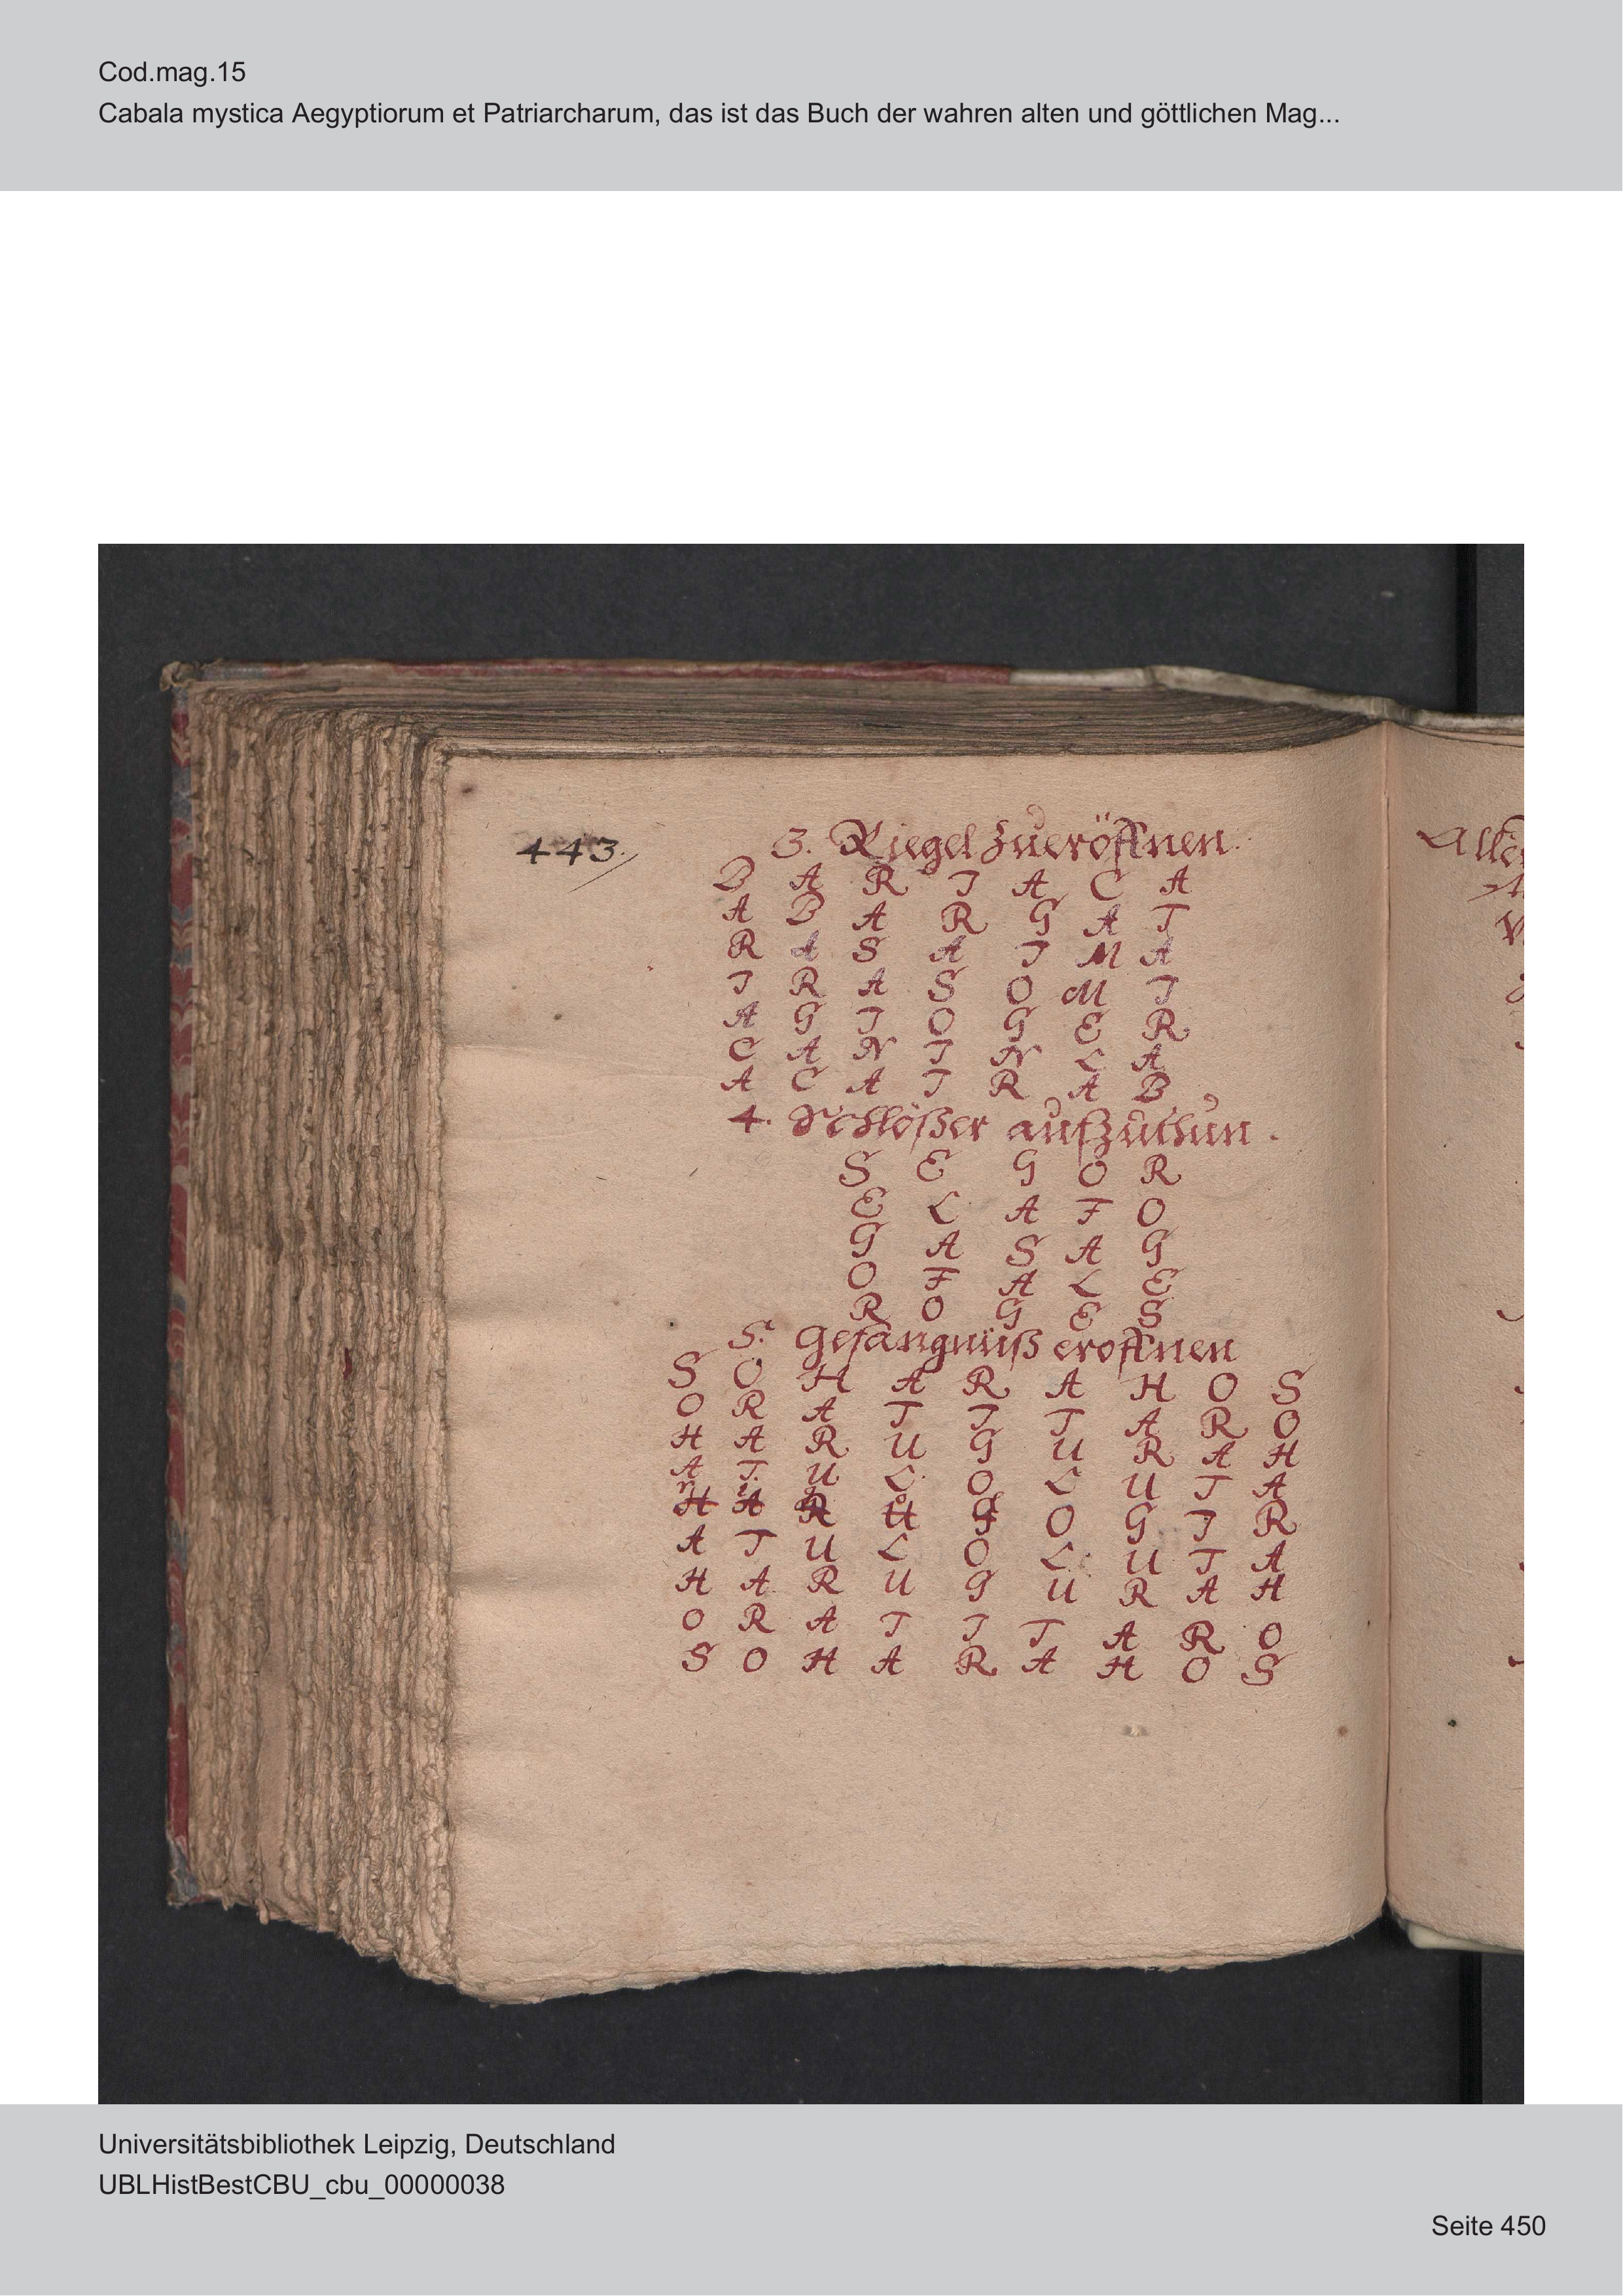 Cod.mag.15
Cabala mystica Aegyptiorum et Patriarcharum, das ist das Buch der wahren alten und göttlichen Mag...
443.
3. Riegel zueröffnen.
B A R I A C A
A B A R G A T
R A S A I M A
I R A S O M I
A G I O G E R
C A N I N L A
A C A I R A B
4. Schlößer aufzuthun.
S E G O R
E L A F O
G A S A G
O F A L E
R O G E S
5. Gefängnüß eroffnen
S O H A R A H O S
O R A T I T A R O
H A R U G U R A H
A T U L O L U T A
R I G O S O G I R
A T U L O L U T A
H A R U G U R A H
O R A T I T A R O
S O H A R A H O S
Universitätsbibliothek Leipzig, Deutschland
UBLHistBestCBU_cbu_00000038
Seite 450